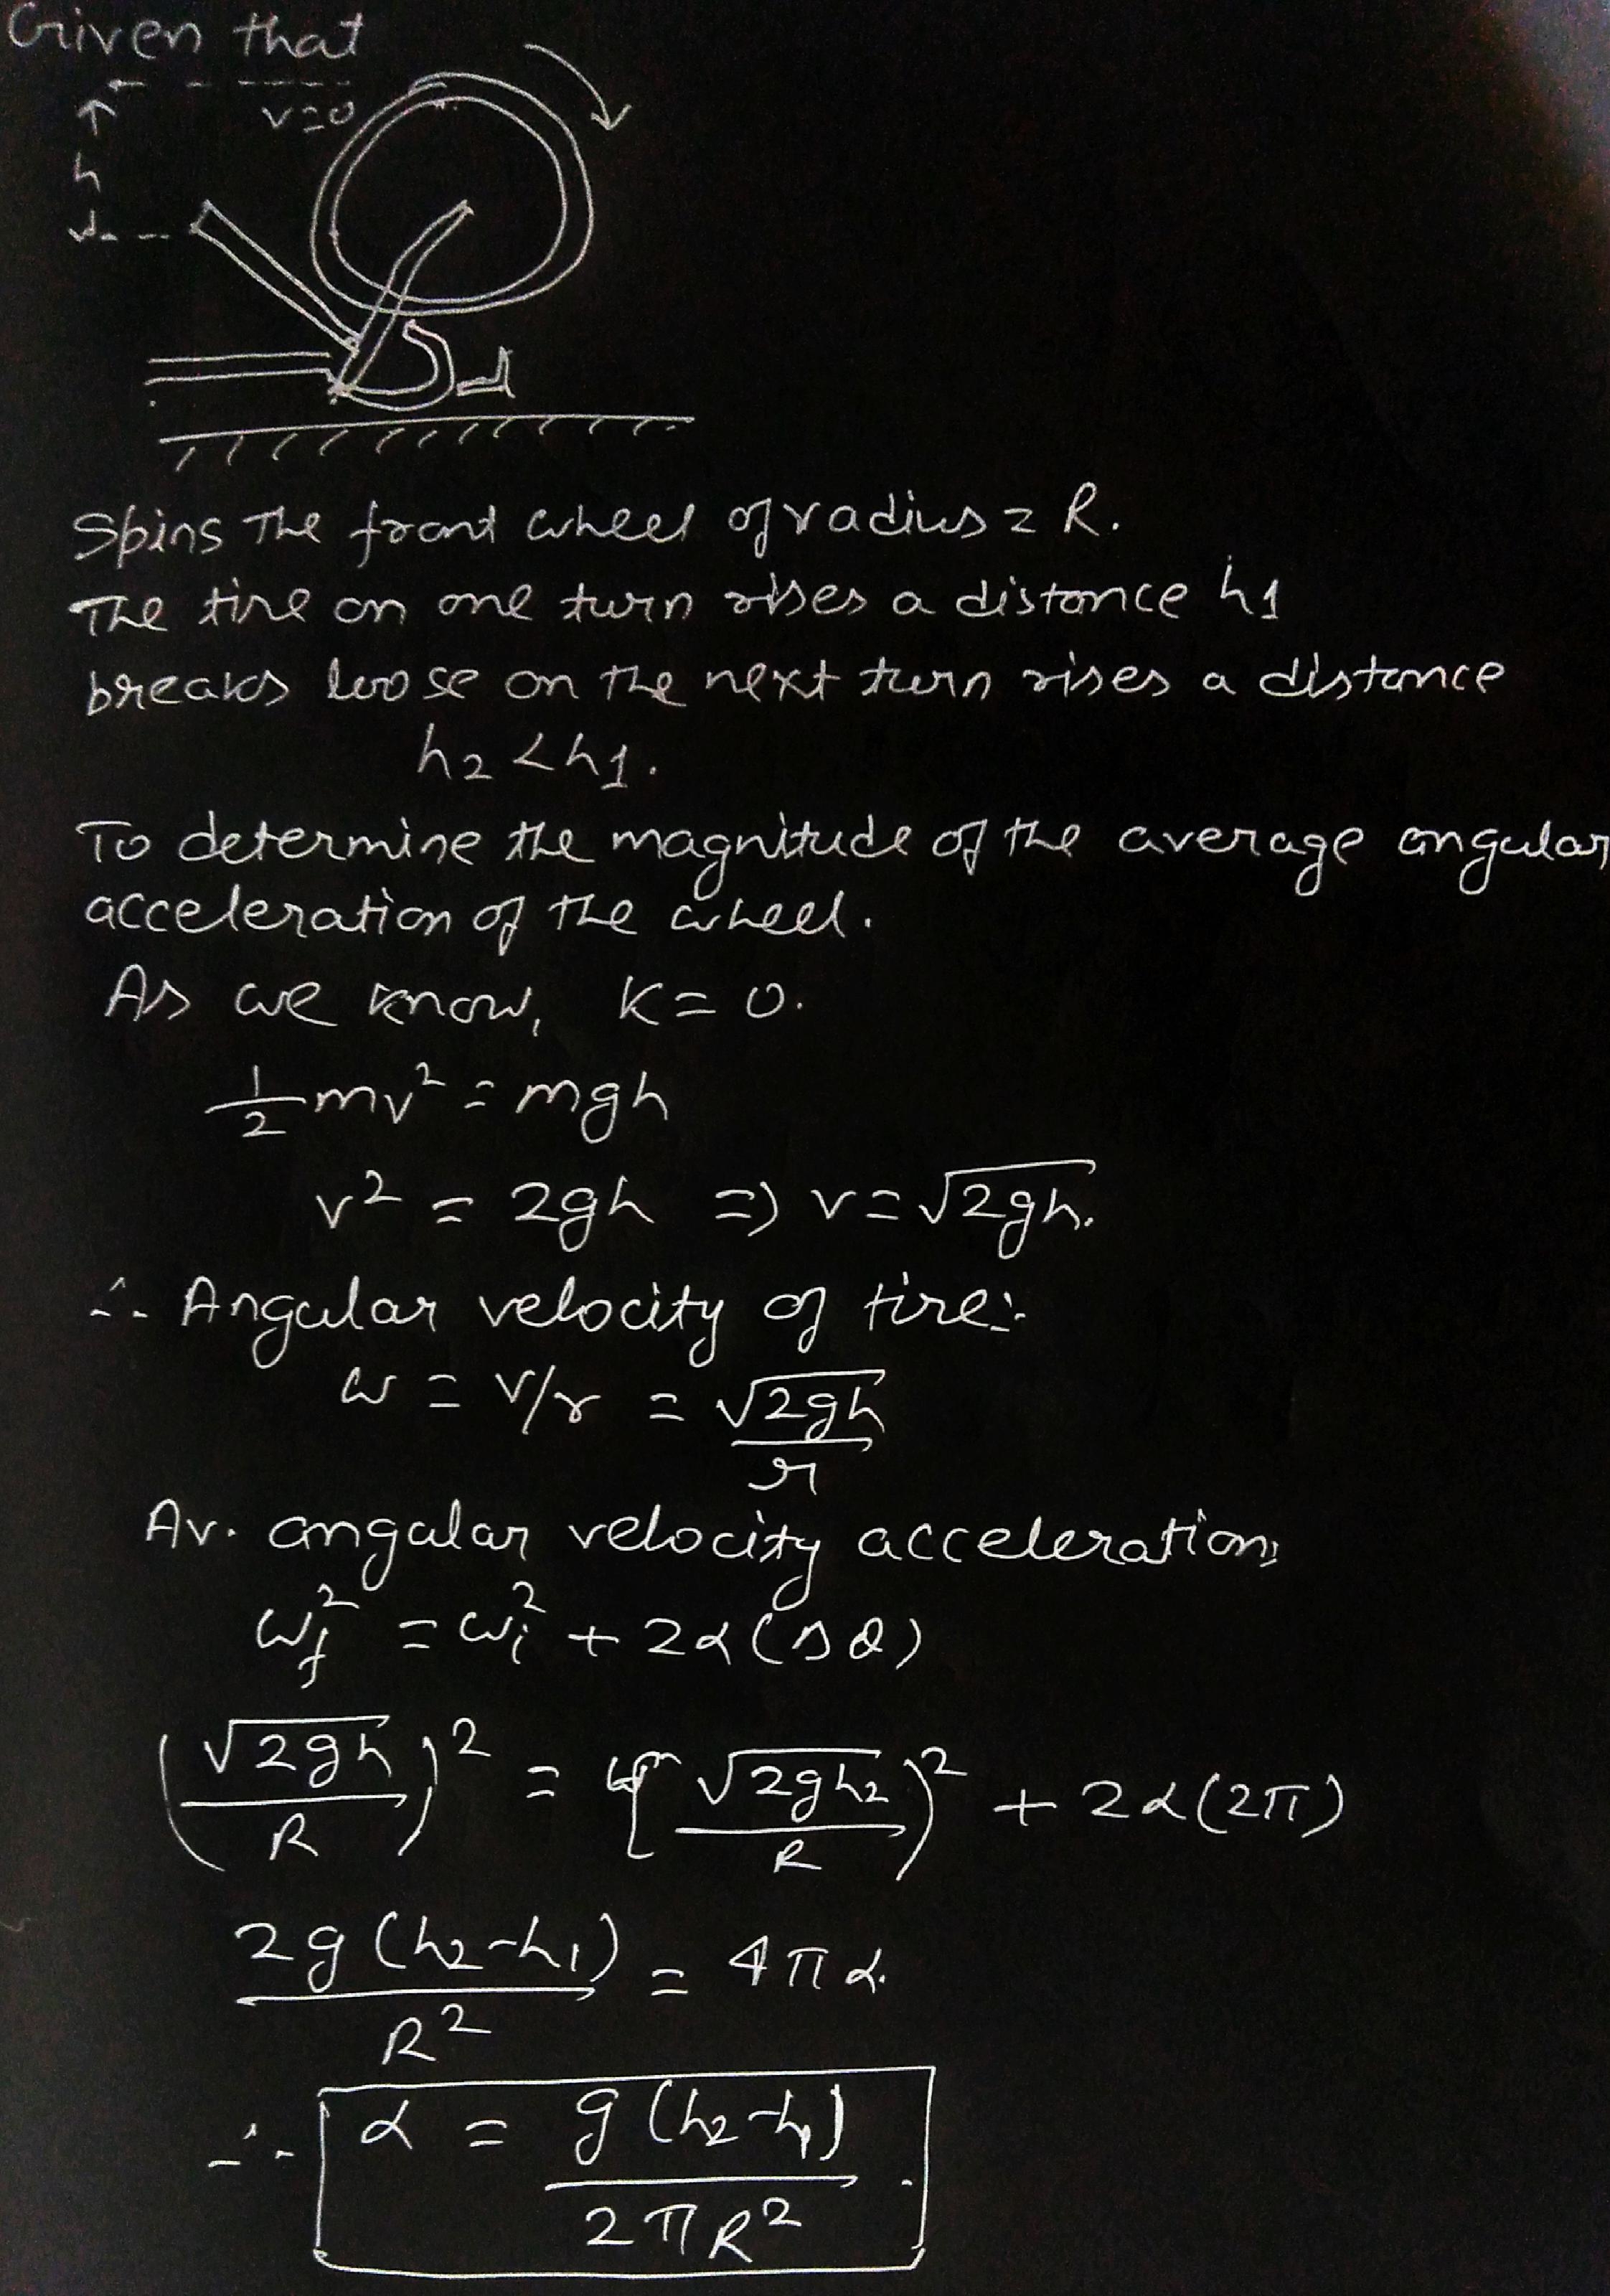 Given that
v=0
h
Spins The front wheel of radius = R.
The tire on one turn rises a distance h1
breaks loose on the next turn rises a distance
h2 < h1.
To determine the magnitude of the average angular
acceleration of the wheel.
As we know, K = 0.
1/2 mv² = mgh
v² = 2gh => v = √2gh.
∴ Angular velocity of tire:-
ω = v/r = √2gh / r
Av. angular velocity acceleration,
ωf² = ωi² + 2α(Δθ)
(√2gh / R)² = (√2gh2 / R)² + 2α(2π)
2g(h2-h1) / R² = 4πα.
∴ α = g(h2-h1) / 2πR².